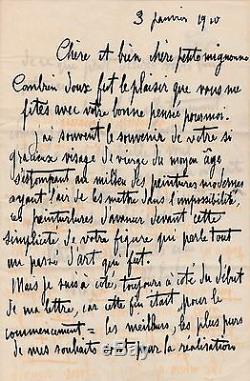 3 Janvier 1910
Chère et bien chère petite mignonne
Combien doux fut le plaisir que vous me
fites avec votre bonne pensée pour moi.
J'ai souvent le souvenir de votre si
gracieux visage de vierge du moyen âge
s'estompant au milieu des peintures modernes
ayant l'air de les mettre dans l'impossibilité
ces peinturlures d'avancer devant cette
simplicité de votre figure qui parle tout
un passé d'art qui fut.
Mais je suis à côté, toujours à côté du début
de ma lettre, car cette fin était pour le
commencement = les meilleurs, les plus purs
de mes souhaits sont pour la réalisation